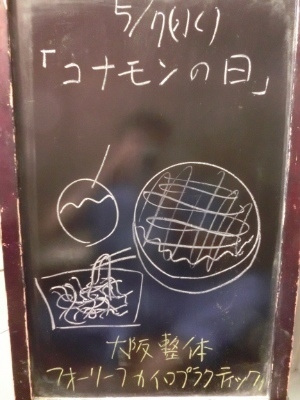 5/7(火)
「コナモンの日」
大阪整体
フォーリーフカイロプラクティック